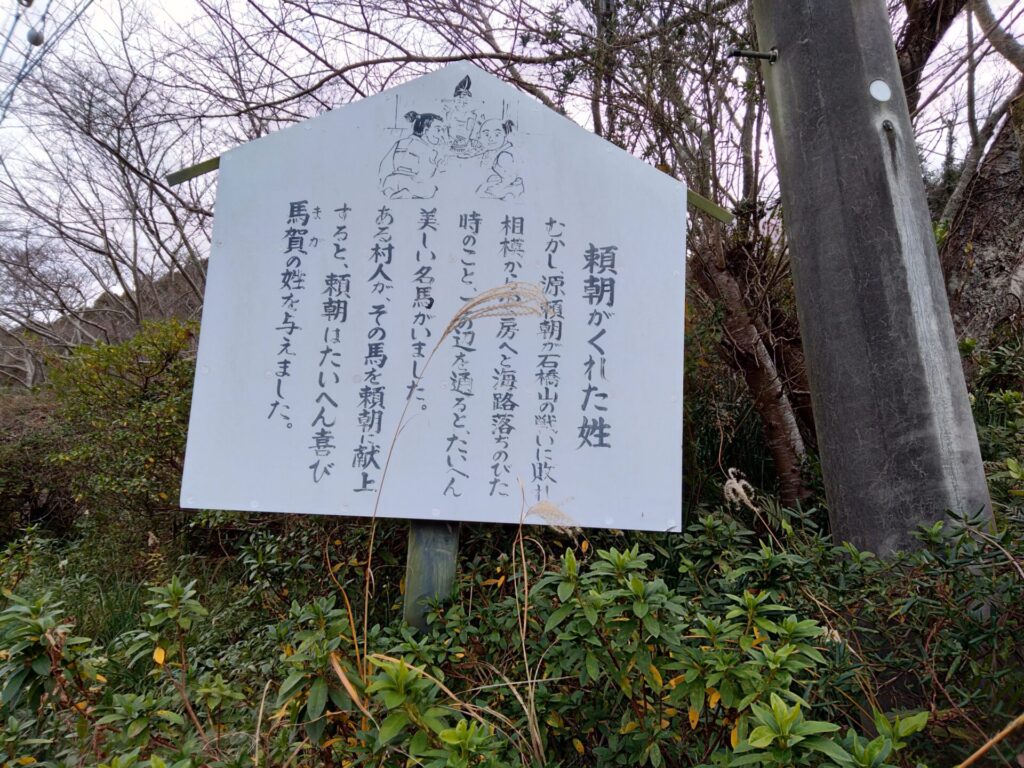 頼朝がくれた姓
むかし源頼朝が石橋山の戦いに敗れ
相模から房へと海路落ちのびた
時のこと、の辺を通ると、たいへん
美しい名馬がいました。
ある村人が、その馬を頼朝に献上
すると、頼朝はたいへん喜び
馬賀の姓を与えました。
まか